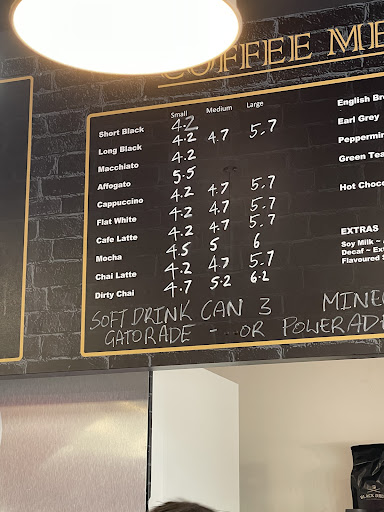 COFFEE ME
Small Medium Large
Short Black 4.2
Long Black 4.2 4.7 5.7
Macchiato 4.2
Affogato 5.5
Cappuccino 4.2 4.7 5.7
Flat White 4.2 4.7 5.7
Cafe Latte 4.2 4.7 5.7
Mocha 4.5 5 6
Chai Latte 4.2 4.7 5.7
Dirty Chai 4.7 5.2 6.2
English Br
Earl Grey
Peppermin
Green Tea
Hot Choco
EXTRAS
Soy Milk –
Decaf – Ex
Flavoured S
SOFT DRINK CAN 3 MINE
GATORADE - OR POWERAD